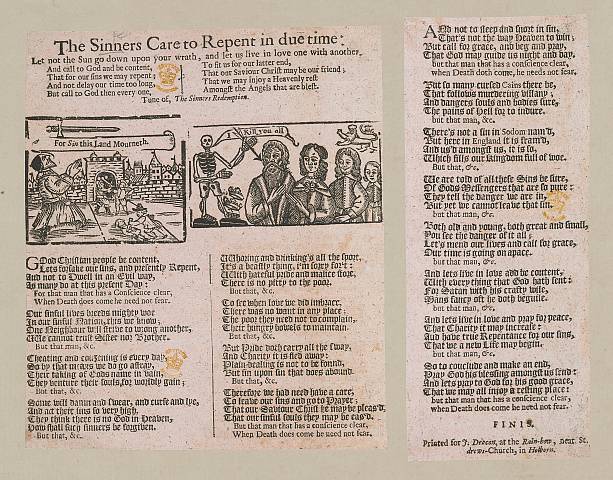 The Sinners Care to Repent in due time:
Let not the Sun go down upon your wrath, and let us live in love one with another,
And call to God and be content,
That for our sins we may repent;
And not delay our time too long,
But call to God then every one,
To sit for our latter end,
That our Saviour Christ may be our friend;
That we may injoy a Heavenly rest
Amongst the Angels that are blest.
Tune of, The Sinners Redemption.
For Sin this Land Mourneth.
I Kill you all
GOod Christian people be content,
Lets forsake our sins, and presently Repent,
And not to Dwell in an Evil way,
As many do at this present Day:
For that man that has a Conscience clear,
When Death does come he need not fear.
Our sinful lives breeds mighty woe
In our sinful Nation, this we know;
Our Neighbour will strive to wrong another,
We cannot trust Sister nor Brother.
But that man, &c.
Cheating and couzening is every day,
So by that means we do go astray,
Their taking of Gods name in vain,
They venture their souls, for worldly gain;
But that, &c.
Some will damn and swear, and curse and lye,
And act their sins so very high,
They think there is no God in Heaven,
How shall such sinners be forgiven.
But that, &c.
Whoring and drinking's all the sport,
It's a beastly thing, i'm sorry for't:
With hateful pride and malice store,
There is no pitty to the poor.
But that, &c.
To see when love we did imbrace,
There was no want in any place:
The poor they need not to complain,
Their hungry bowels to maintain.
But that, &c.
But Pride doth carry all the sway,
And Charity it is fled away:
Plain-dealing is not to be found,
But sin upon sin that does abound.
But that, &c.
Therefore we had need have a care,
To leave our sins and go to Prayer;
That our Saviour Christ he may be pleas'd,
That our sinful souls they may be eas'd.
But that man that has a conscience clear,
When Death does come he need not fear.
ANd not to sleep and snort in sin,
That's not the way Heaven to win;
But call for grace, and beg and pray,
That God may guide us night and day.
but that man that has a conscience clear,
when Death doth come, he needs not fear.
But so many cursed Cains there be,
That follows murdering villany;
And dangers souls and bodies sure,
The pains of Hell for to indure.
but that man, &c.
There's not a sin in Sodom nam'd,
But here in England it is fram'd,
And us'd amongst us, it is so,
Which fills our Kingdom full of woe.
But that, &c.
We are told of all these Sins be sure,
Of Gods Messengers that are so pure:
They tell the danger we are in,
But yet we cannot leave that sin.
but that man, &c.
Both old and young, both great and small,
You see the danger of it all;
Let's mend our lives and call for grace,
Our time is going on apace.
but that man, &c.
And lets live in love and be content,
With every thing that God hath sent:
For Satan with his crafty wile,
Mans fancy oft he doth beguile.
but that man, &c.
And lets live in love and pray for peace,
That Charity it may increase:
And have true Repentance for our sins,
That we a new Life may begin.
but that man, &c.
So to conclude and make an end,
Pray God his blessing amongst us send:
And lets pray to God for his good grace,
That we may all injoy a resting place:
but that man that has a conscience clear,
when Death does come he need not fear.
FINIS.
Printed for J. Deacon, at the Rain-bow, near St.
drews-Church, in Holborn.